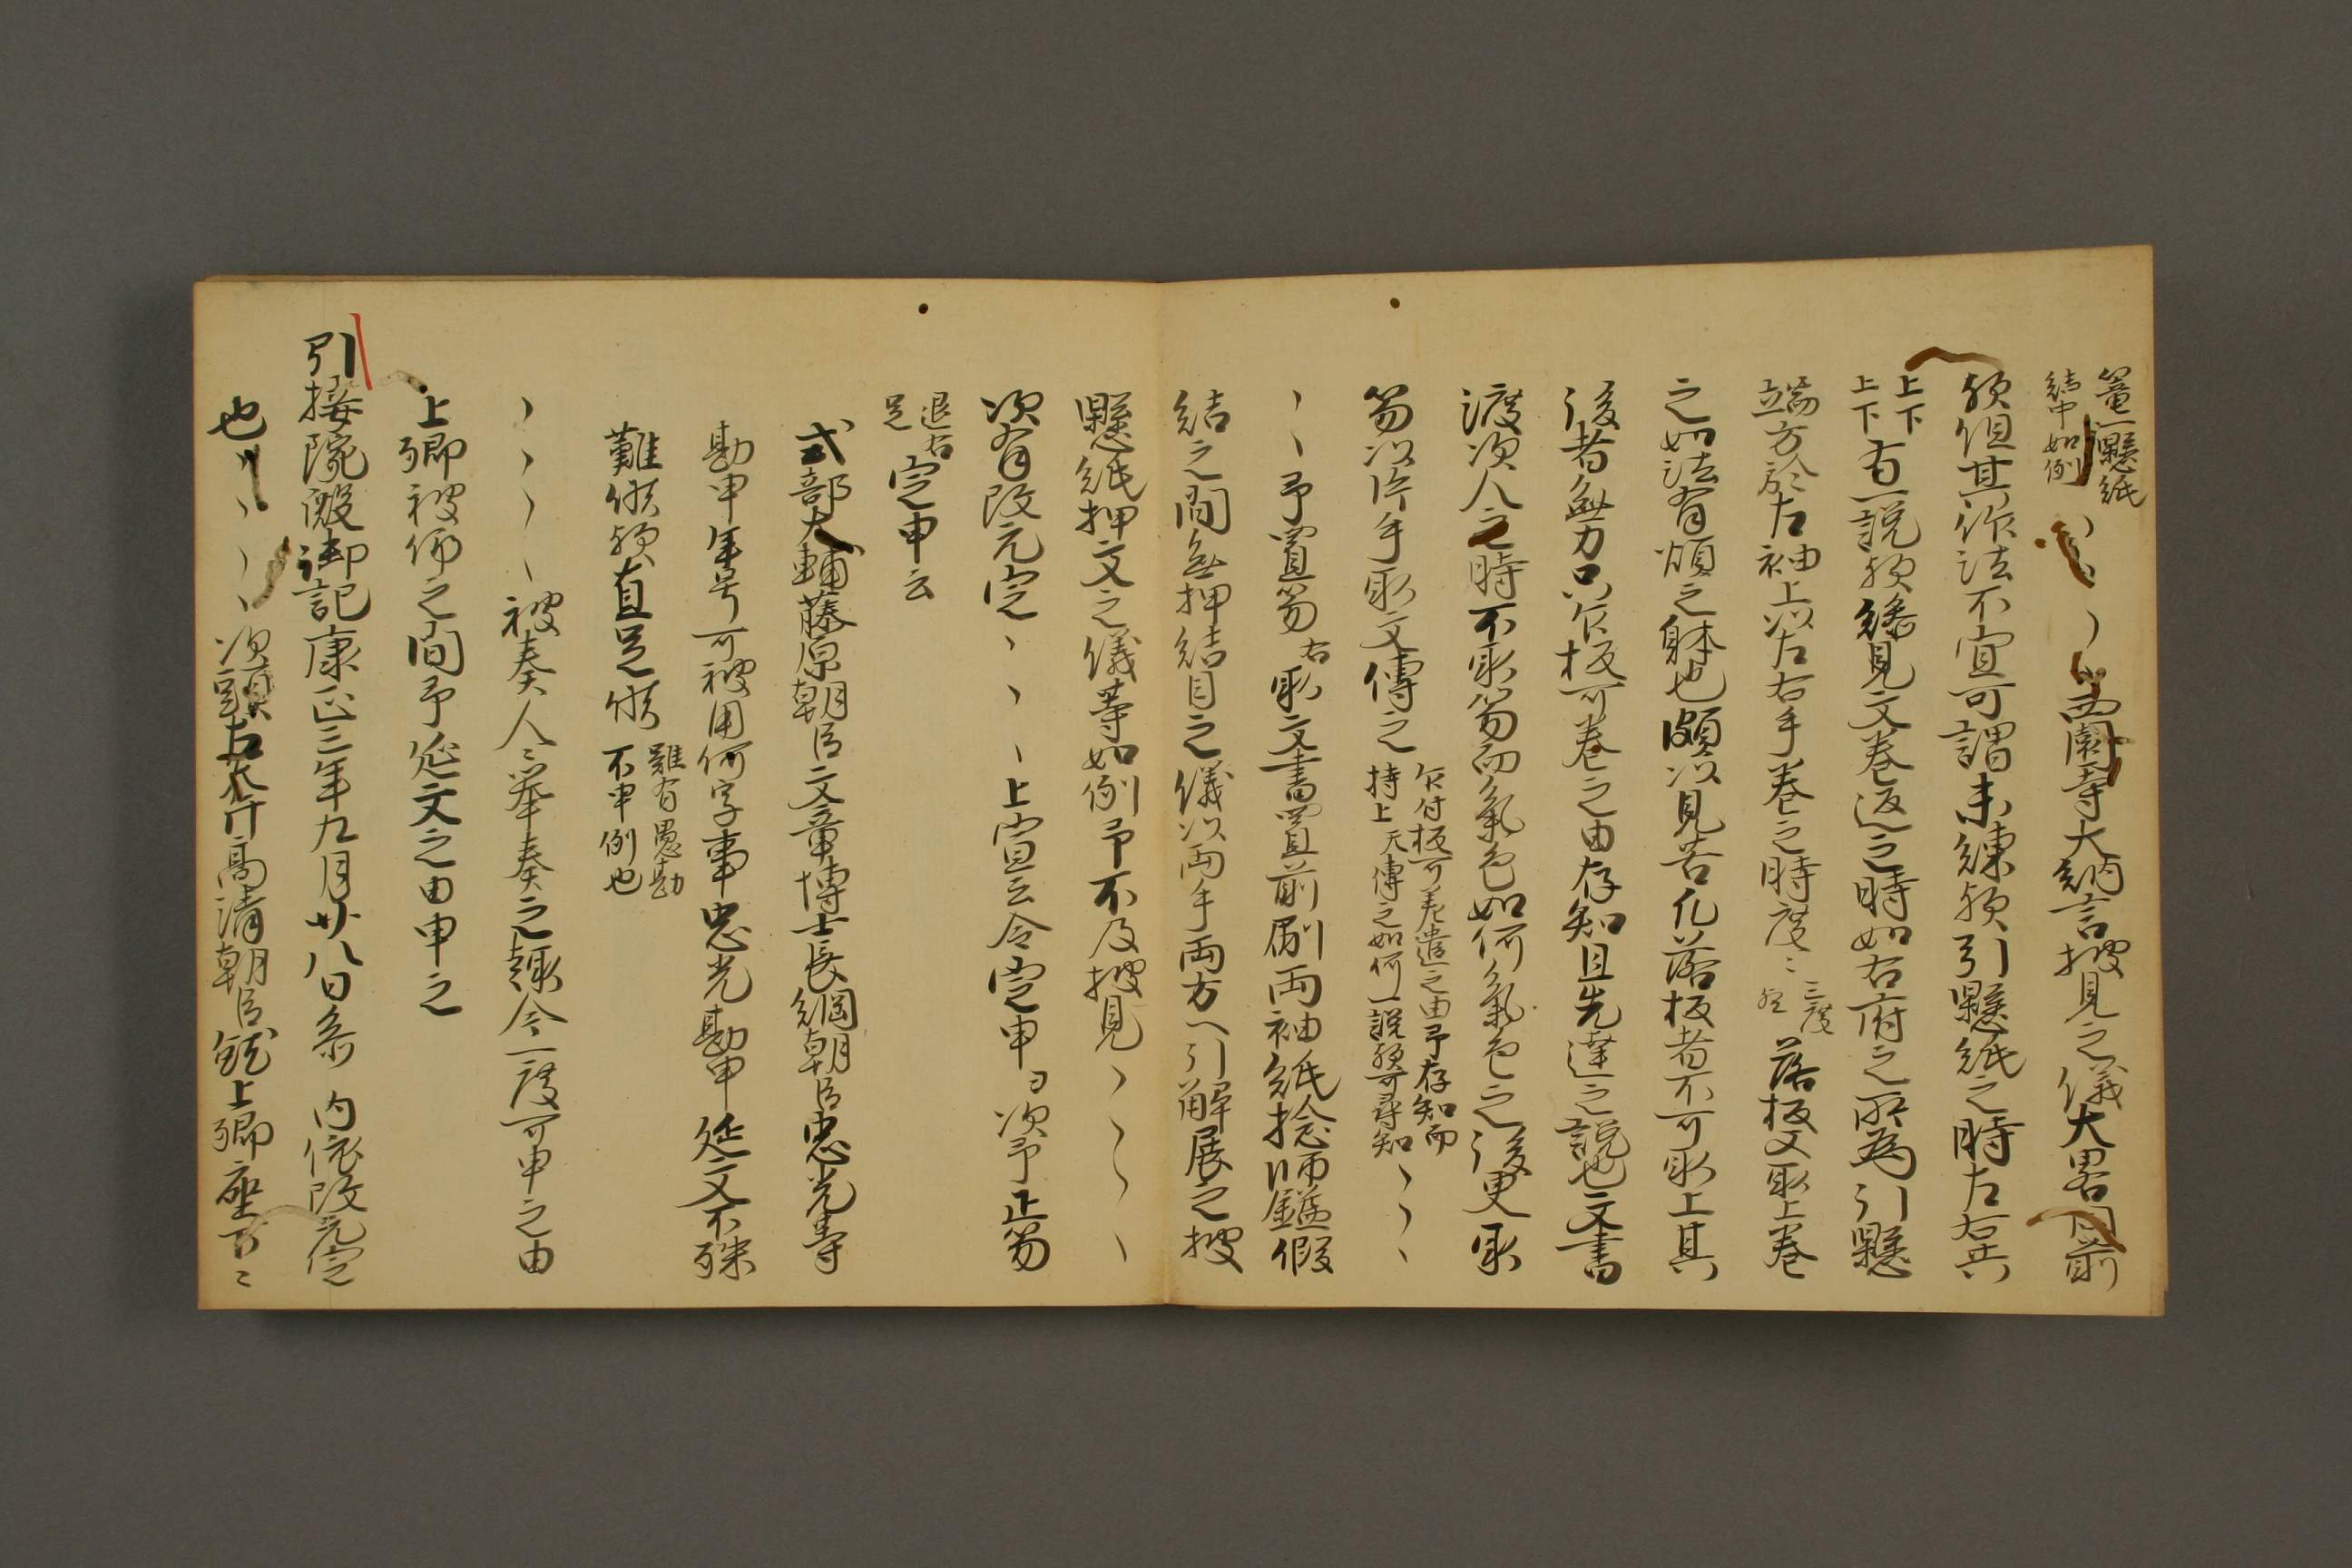 篭懸紙
結中如例
丶丶丶丶丶西園寺大納言披見之儀大畧同前
歟但其作法不宜可謂未練歟引懸紙之時左右共
上下
上下
有一説歟繙見文巻返之時如右府之所為引懸
端方於左袖上以左右手巻之時度々
三度
程
落板又取上巻
之如法有煩之躰也頗以見苦凡落板者不可取上其
後者無力只乍板可巻之由存知且先達之説也文書
渡次人之時不取笏而氣色如何氣色之後更取
笏以片手取文傳之
乍付板可差遣之由予存知而
持上天傳之如何一説歟可尋知
丶丶丶
丶丶予置笏
右
取文書置前刷両袖紙捻
假
結之間無押結目之儀以両手両方へ引解展之披
懸紙押文之儀等如例予不及披見丶丶丶丶
次有改元定丶丶丶上宣云令定申ヨ次予正笏
退右
足
定申云
式部大輔藤原朝臣文章博士長綱朝臣忠光等
勘申年号可被用何字事忠光勘申延文不殊
難候歟直足候
雖有愚勘
不申例也
丶丶丶丶被奏人々挙奏之趣今一度可申之由
上卿被仰之間予延文之由申之
引接院殿御記康正三年九月廿八日 内依改元定
也丶丶丶丶次頭右大弁高清朝臣就上卿座下々